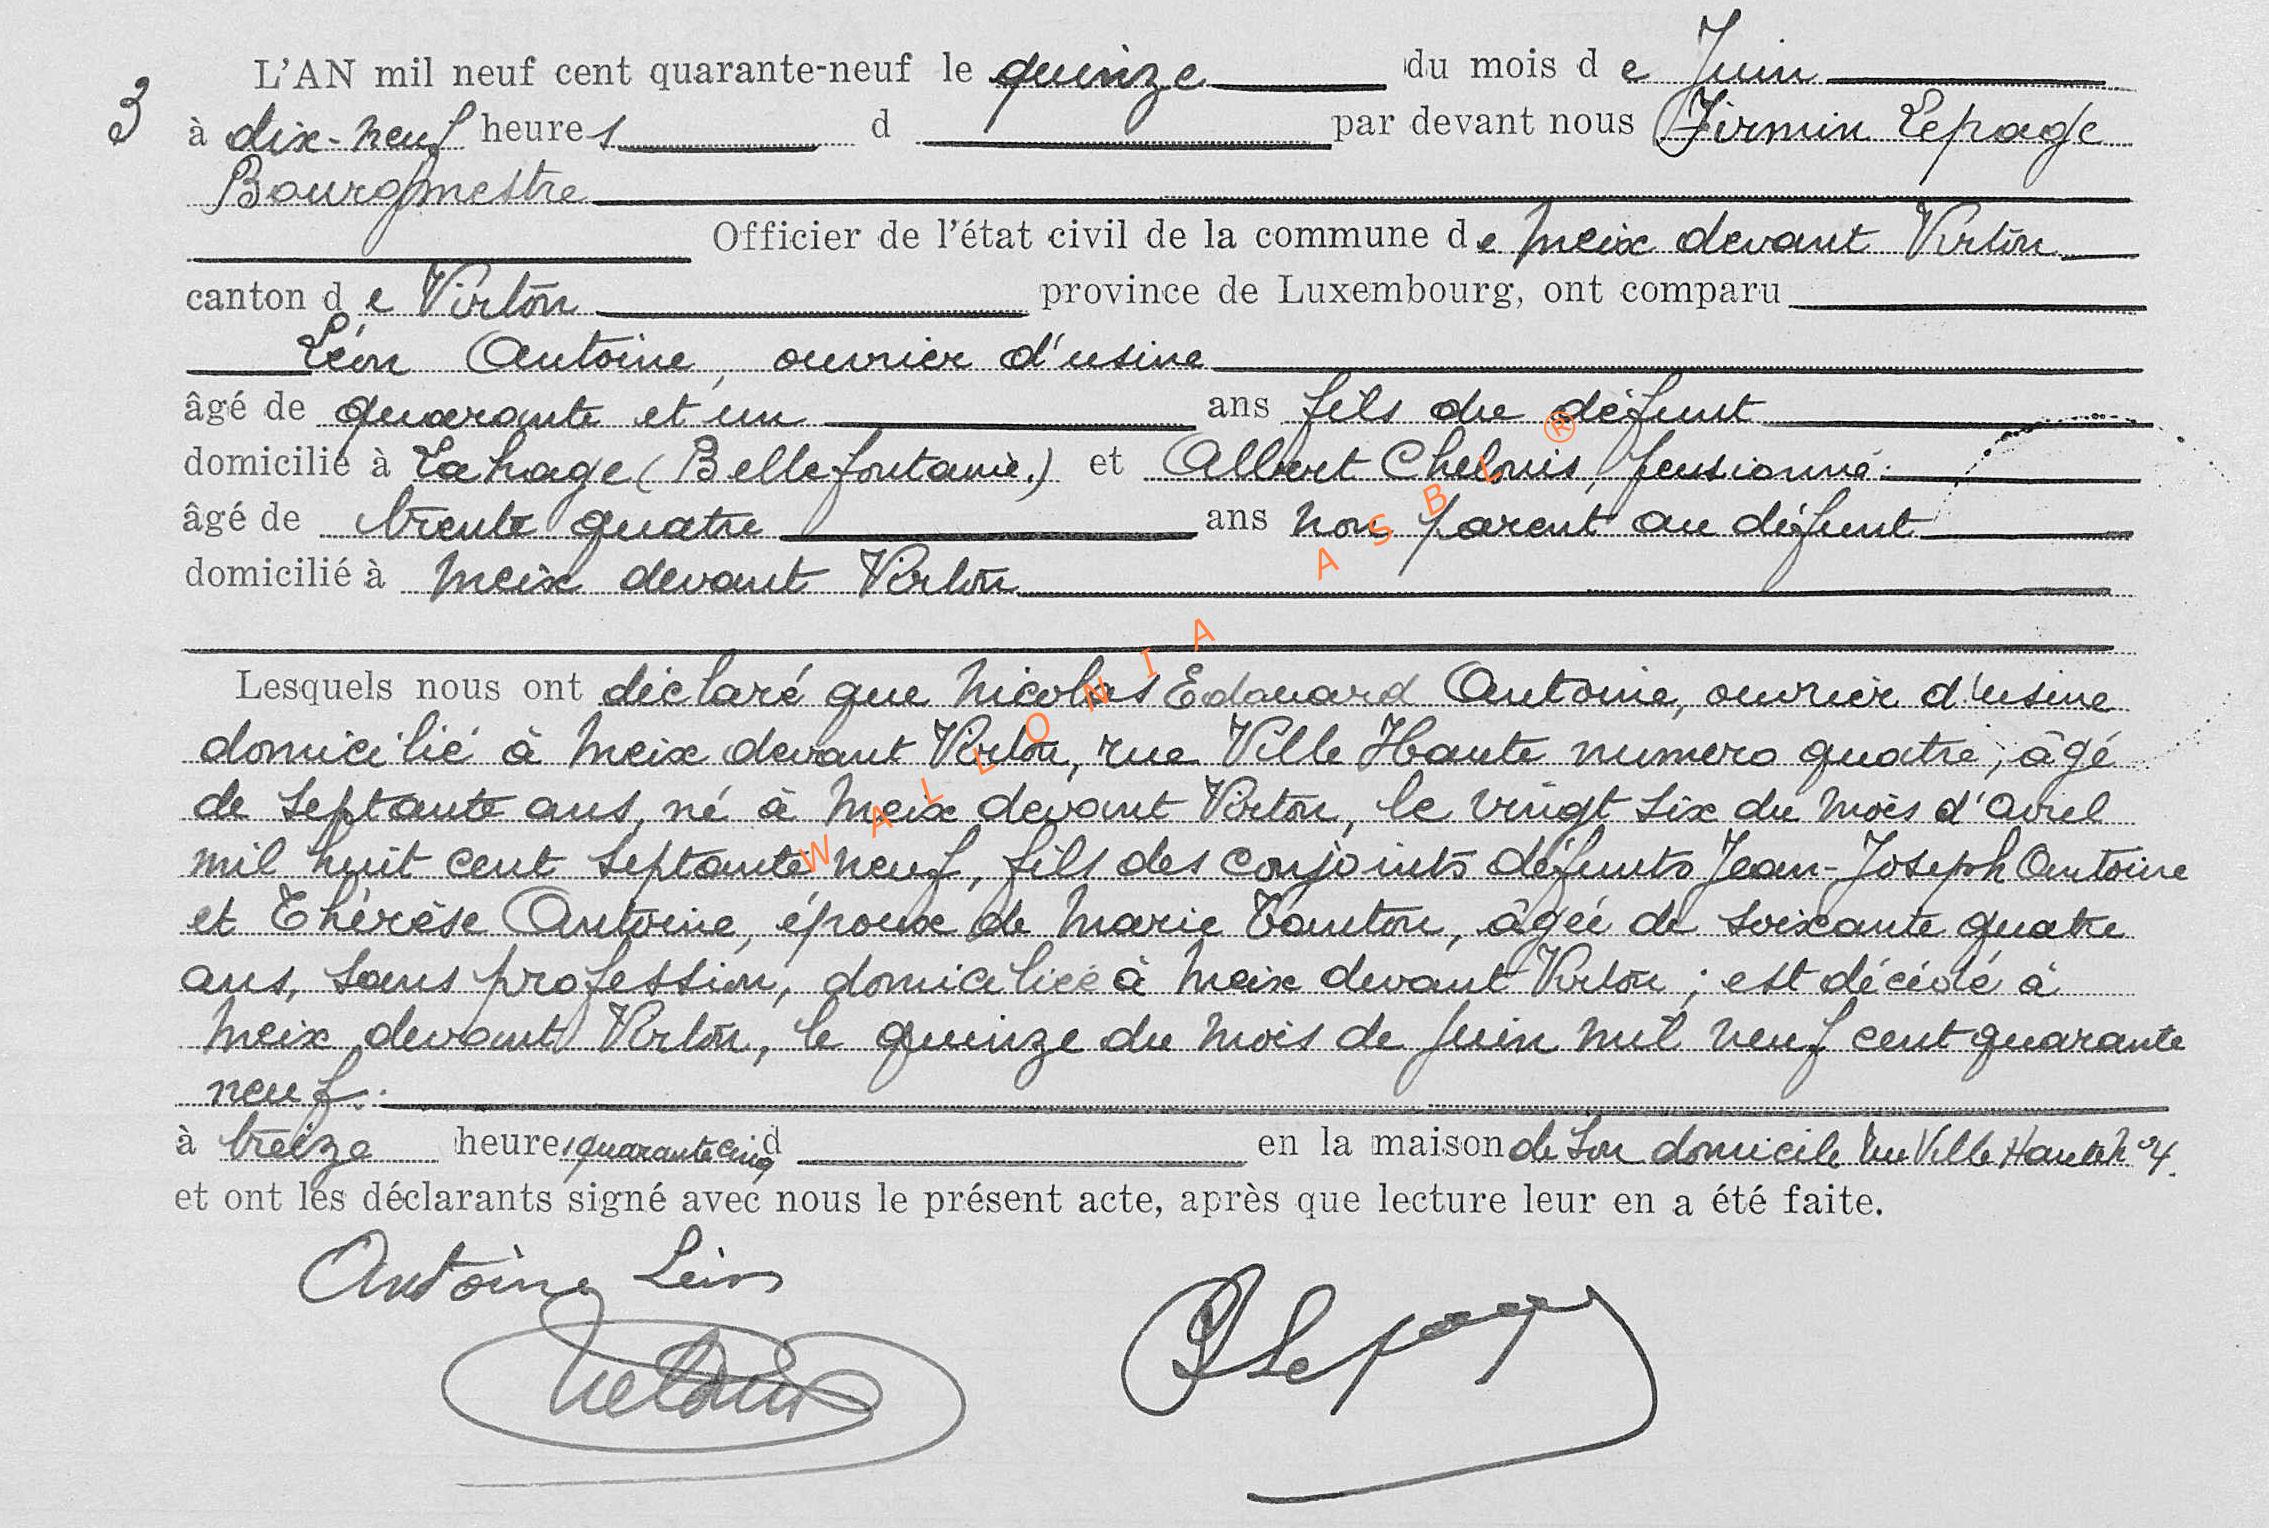 L'AN mil neuf cent quarante-neuf le quinze du mois de Juin
3
à dix-neuf heures d par devant nous Firmin Lepage
Bourgmestre
Officier de l'état civil de la commune de Meix devant Virton
canton de Virton province de Luxembourg, ont comparu
Léon Antoine, ouvrier d'usine
âgé de quarante et un ans fils du défunt
domicilié à Lahage (Bellefontaine.) et Albert Chelouis, pensionné.
âgé de trente quatre ans non parent au défunt
domicilié à Meix devant Virton
Lesquels nous ont déclaré que Nicolas Edouard Antoine, ouvrier d'usine
domicilié à Meix devant Virton, rue Ville Haute numero quatre, âgé
de septante ans, né à Meix devant Virton, le vingt six du mois d'avril
mil huit cent septante neuf, fils des conjoints défunts Jean-Joseph Antoine
et Thérèse Antoine, époux de Marie Tauton, âgée de soixante quatre
ans, sans profession, domiciliée à Meix devant Virton ; est décédé à
Meix devant Virton, le quinze du mois de juin mil neuf cent quarante
neuf.
à treize heures quarante cinq d en la maison de son domicile rue Ville Haute n° 4.
et ont les déclarants signé avec nous le présent acte, après que lecture leur en a été faite.
Antoine Léon
Lepage
WALLONIA ASBL ®